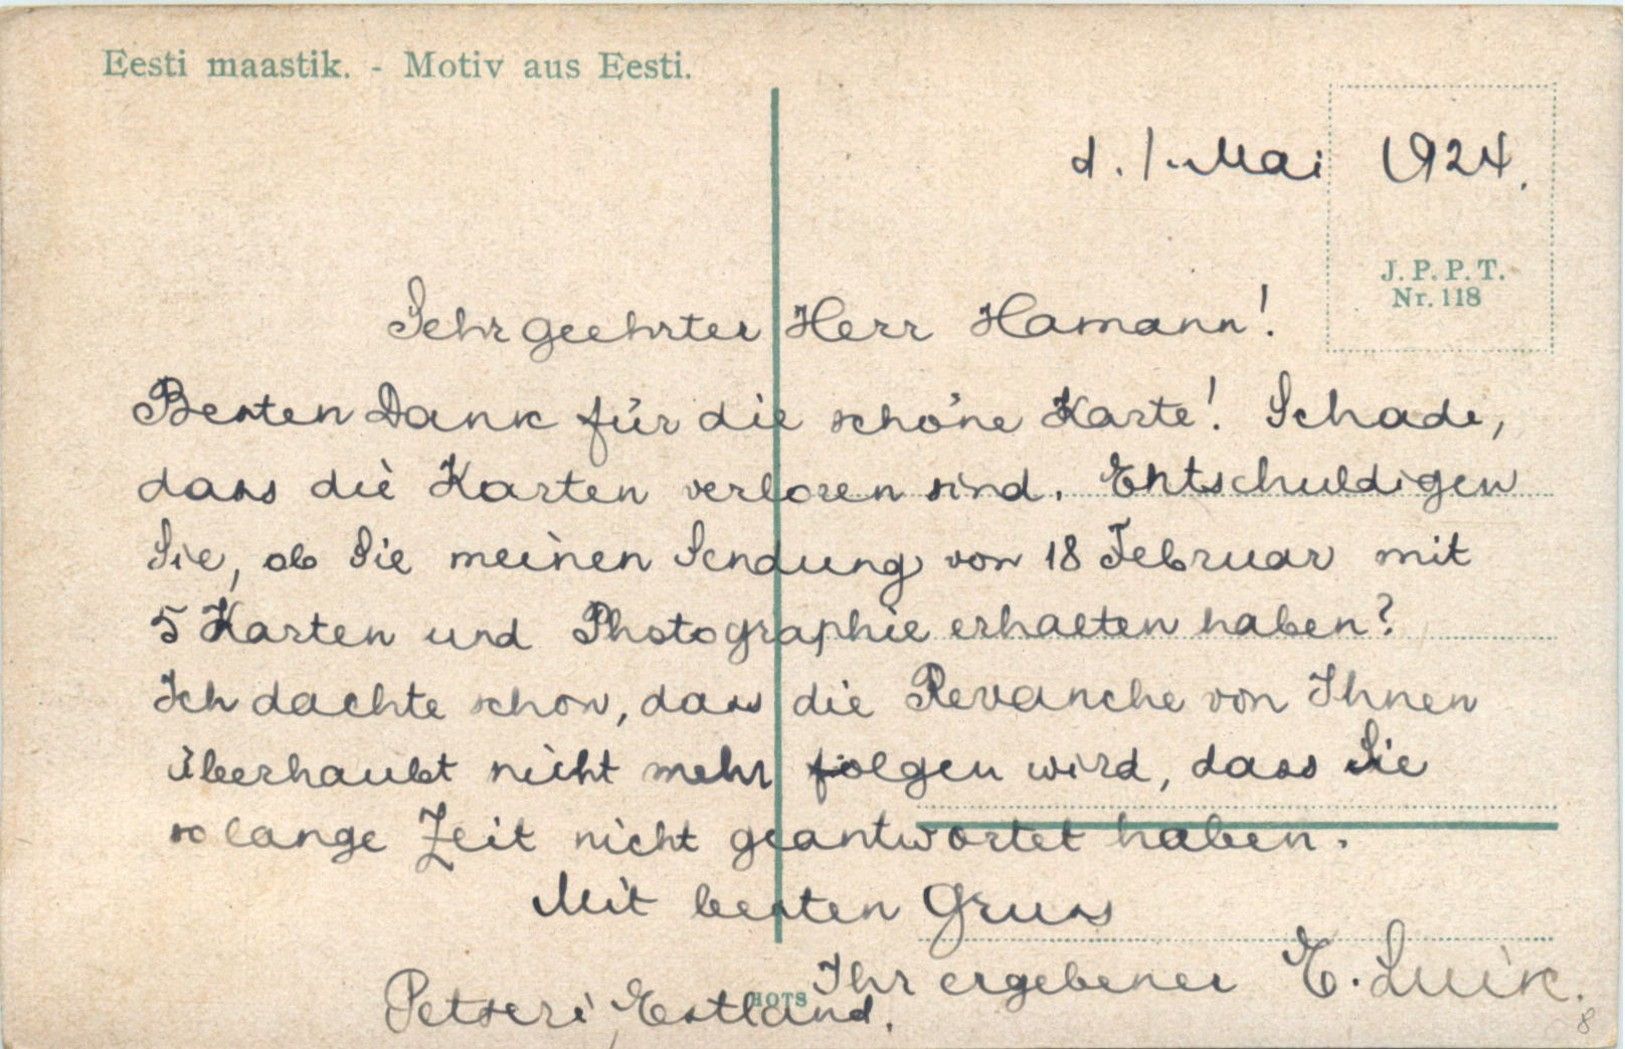 Eesti maastik. - Motiv aus Eesti.
d. 1. Mai 1924.
J. P. P. T.
Nr. 118
Sehr geehrter Herr Hamann!
Besten Dank für die schöne Karte! Schade,
dass die Karten verloren sind. Entschuldigen
Sie, ob Sie meinen Sendung von 18 Februar mit
5 Karten und Photographie erhalten haben?
Ich dachte schon, dass die Revanche von Ihnen
überhaubt nicht mehr folgen wird, dass Sie
so lange Zeit nicht geantwortet haben.
Mit besten Gruss
Ihr ergebener E. Luik.
Petseri, Estland.
HOTS
8